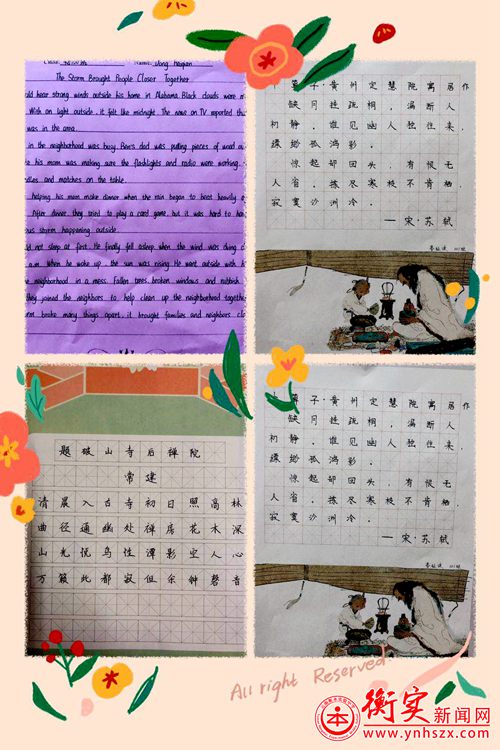 Name:
The Storm Brought People Closer Together
ould hear strong winds outside his home in Alabama. Black clouds were
With on light outside, it felt like midnight. The news on TV reported
was in the area.
in the neighborhood was busy. Ben's dad was putting pieces of wood
his mom was making sure the flashlights and radio were working.
and matches on the table.
helping his mom make dinner when the rain began to beat heavily
After dinner, they tried to play a card game, but it was hard to
storm happening outside.
not sleep at first. He finally fell asleep when the wind was dying
a.m. When he woke up, the sun was rising. He went outside with
neighborhood in a mess. Fallen trees, broken windows and rubbish
they joined the neighbors to help clean up the neighborhood together
broke many things apart, it brought families and neighbors
子·黄州定慧院寓居作
缺月挂疏桐，漏断人
初静。谁见幽人独往来，
缥缈孤鸿影。
惊起却回头，有恨无
人省。拣尽寒枝不肯栖，
寂寞沙洲冷。
—宋·苏轼
题破山寺后禅院
常建
清晨入古寺初日照高林
曲径通幽处禅房花木深
山光悦鸟性潭影空人心
万籁此都寂但余钟磬音
子·黄州定慧院寓居作
缺月挂疏桐，漏断人
初静。谁见幽人独往来，
缥缈孤鸿影。
惊起却回头，有恨无
人省。拣尽寒枝不肯栖，
寂寞沙洲冷。
—宋·苏轼
All right Reserved
衡实新闻网
www.ynhszx.com